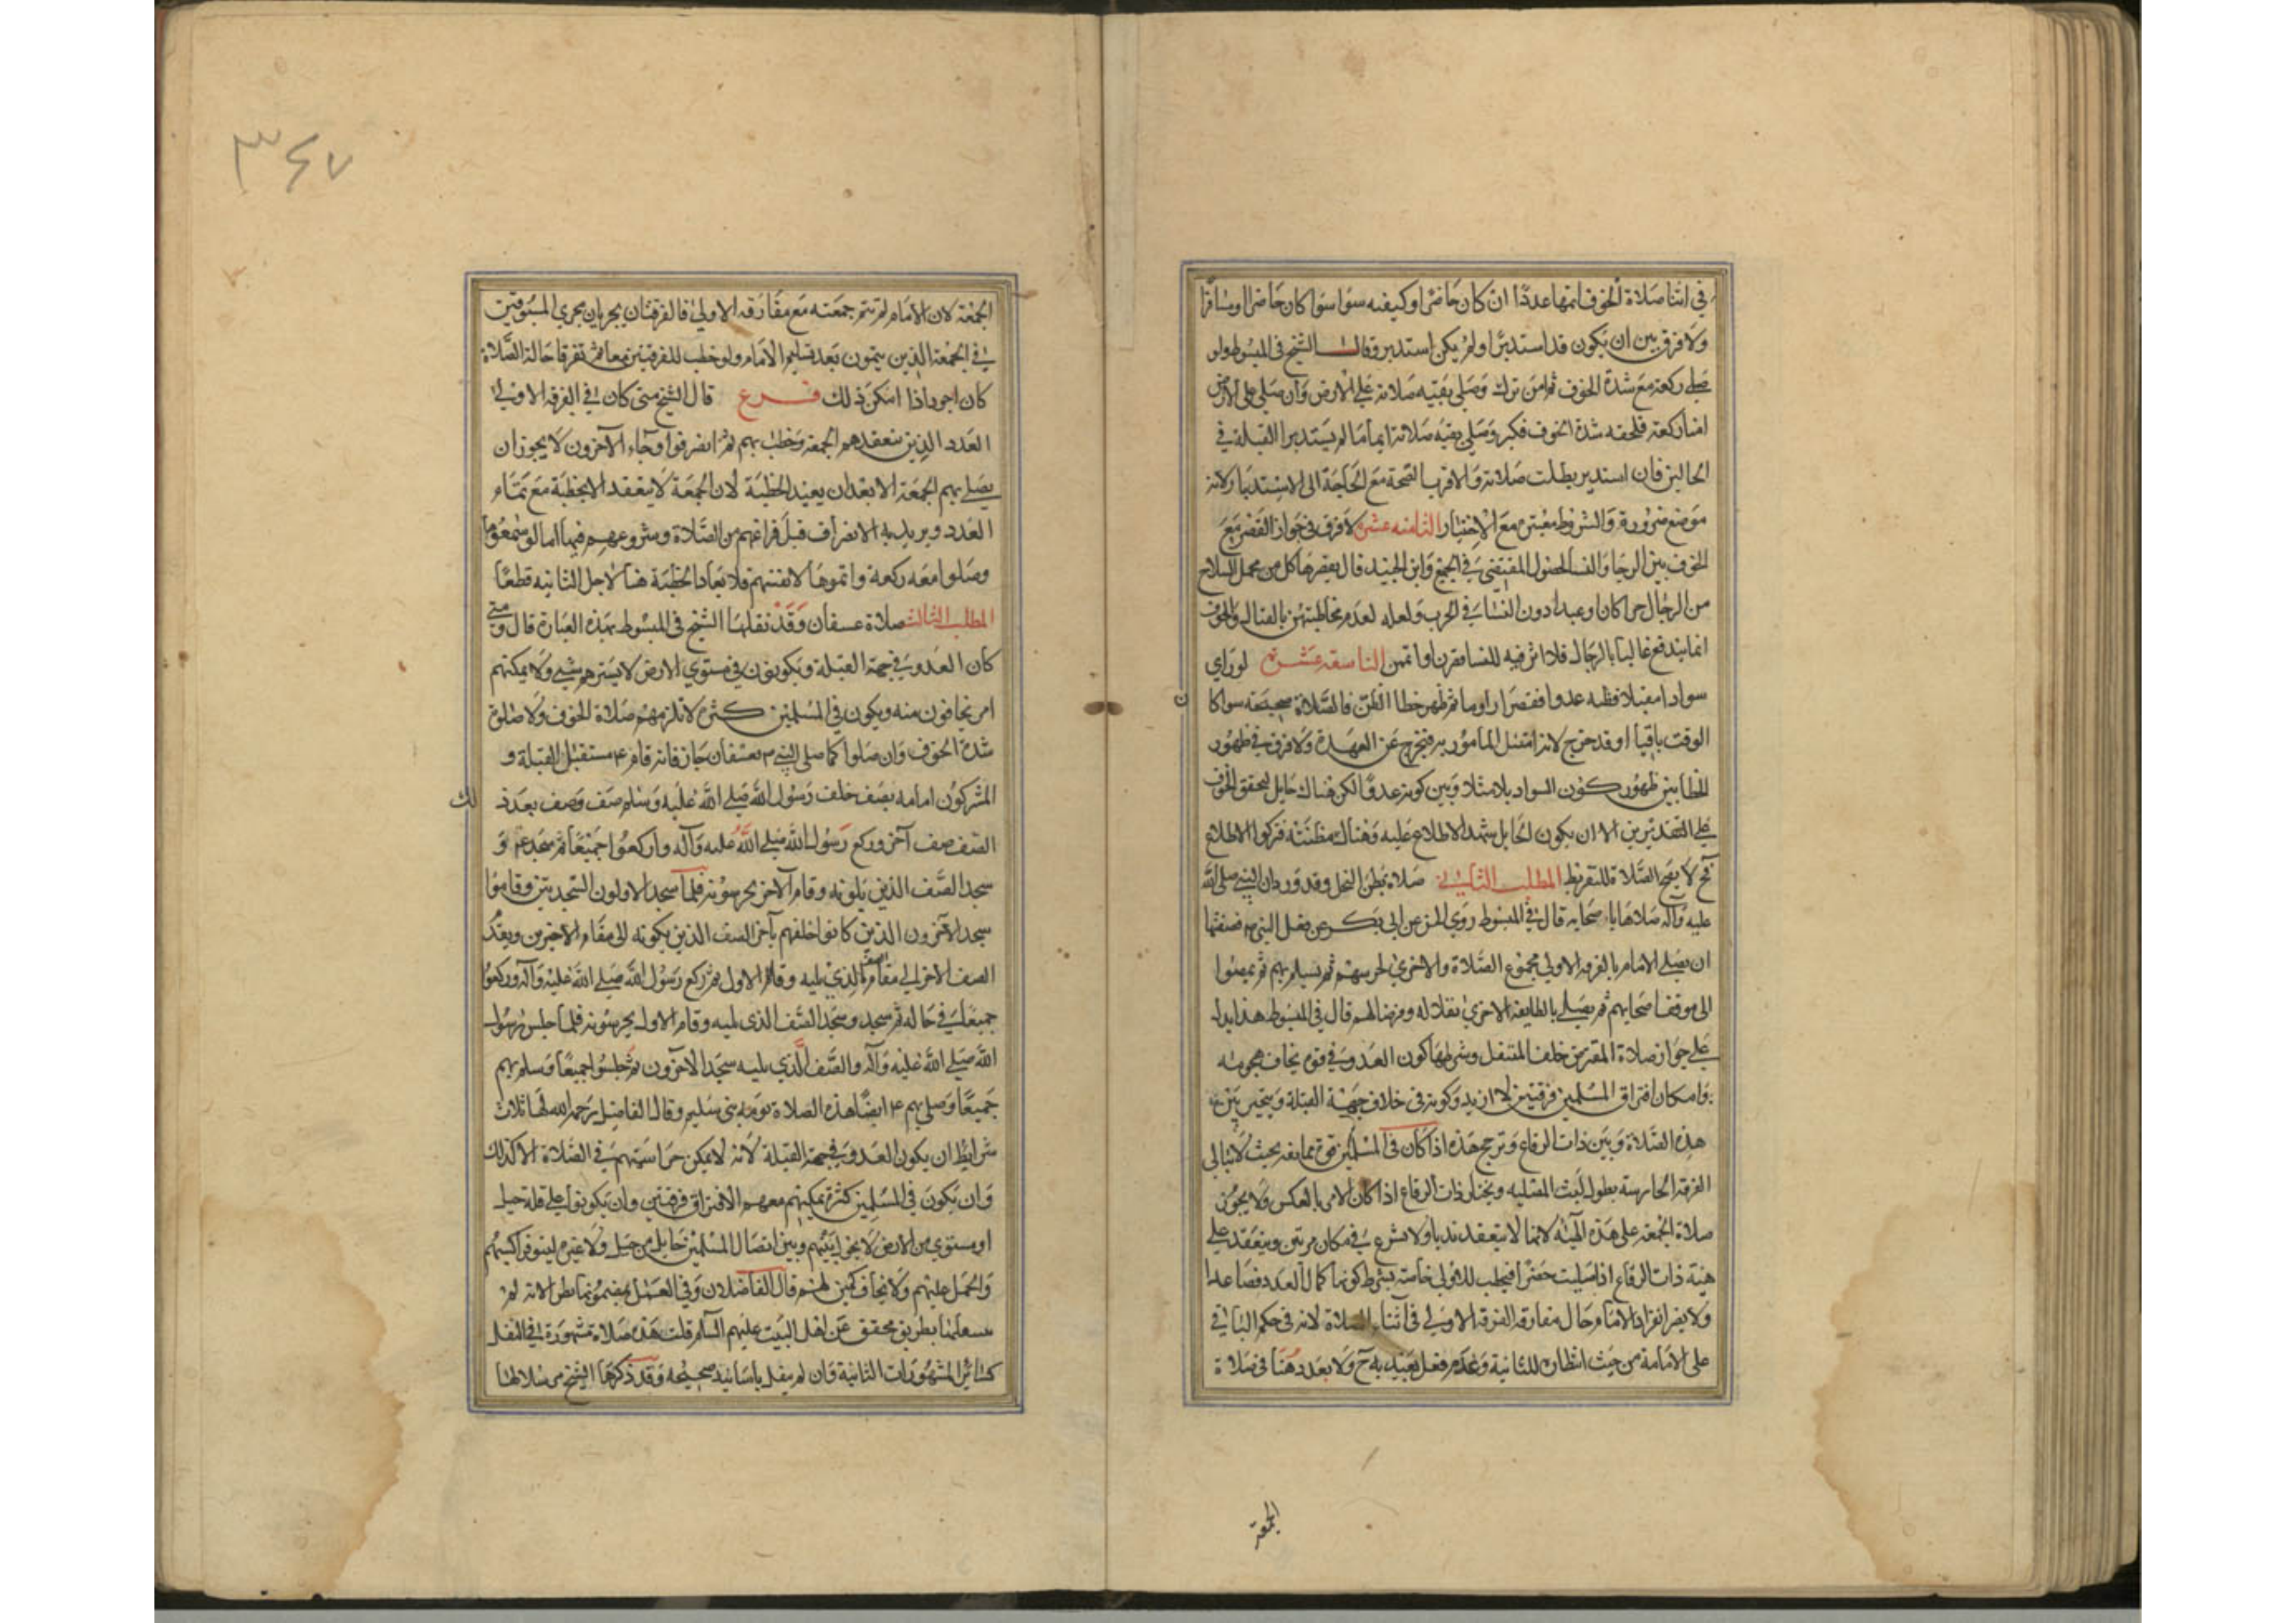 في اثنا صلاة الخوف اتمها عددًا ان كان حاضرا وكيفيه سوا سوا كان حاضرا او مسافرًا
ولا فرق بين ان يكون قد استدبر او لم يكن استدبر وقال الشيخ في المبسوط ولو
صلى ركعة مع شدة الخوف ثم امن ترك وصلى بقيه صلاته على الارض وان صلى على الارض
امنا ركعة فلحقه شدة الخوف فكبر وصلى بقيه صلاته ايما ما لم يستدبر القبلة في
الحالين فان استدبر بطلت صلاته والاقرب الصحة مع الحاجة الى الاستدبار لانه
موضع ضرورة والشروط معتبره مع الاختيار الثامنه عشره لا فرق في جواز القصر مع
الخوف بين الرجا والنسا لحصول المقتضي في الجميع وابن الجنيد قال يقصرها كل من يحمل السلاح
من الرجال حرا كان او عبدا دون النسا في الحرب ولعله لعدم مخاطبتهن بالقتال والخوف
انما يندفع غالبا بالرجال فلا اثر فيه للنسا قصرن او اتممن التاسعه عشره لو راي
سوادا مقبلا فظنه عدوا فقصر او اوما ثم ظهر خطا الظن فالصلاة صحيحه سوا كا
الوقت باقيا او قد خرج لانه امتثل المامور به فيخرج عن العهدة ولا فرق في ظهور
الخطا بين ظهور كون السواد بلا مثلا وبين كونه عدوًا لكن هناك حايل لتحقق الخوف
على التقديرين الا ان يكون الحايل يشهد الاطلاع عليه وهناك مظنته فتركوا الاطلاع
فح لا يصح الصلاة للتفريط المطلب الثاني صلاة بطن النخل وقد ورد ان النبي صلى الله
عليه وآله صلاها باصحابه قال في المبسوط روي الحسن عن ابي بكره عن فعل النبي م فصفتها
ان يصلي الامام بالفرقه الاولي مجموع الصلاة والاخري تحرسهم ثم يسلم بهم ثم يمضوا
الى موقف اصحابهم ثم يصلي بالطايفه الاخري نفلا له وفرضا لهم قال في المبسوط هذا يدل
على جواز صلاة المفترض خلف المتنفل وشرطها كون العدو في قوم يخاف هجومه
وامكان افتراق المسلمين فرقتين لا ازيد وكونه في خلاف جهة القبلة ويتخير بين
هذه الصلاة وبين ذات الرقاع وترجح هذه اذا كان في المسلمين قوة ممانعه بحيث لا تبالي
الفرقه الحارسه بطول لبث المصليه ويختار ذات الرقاع اذا كان الامر بالعكس ولا يجوز
صلاة الجمعة على هذه الهيئه لانها لا تنعقد ندبا ولا تشرع في مكان مرتين وينعقد على
هيئة ذات الرقاع اذا صليت حضرا فيخطب للاولي خاصة بشرط كونها كمال العدد فصاعدا
ولا يضر انفراد الامام حال مفارقه الفرقه الاولي في اثناء الصلاة لانه في حكم الباقي
على الامامة من حيث انتظاره للثانية وعدم فعل يعتد به ح ولا بعدد هنا في صلاة
الجمعة
٣٤٧
الجمعة لان الامام لم تتم جمعته مع مفارقه الاولي فالفرقتان يجريان مجري المسبوقين
في الجمعة الذين يتمون بعد تسليم الامام ولو خطب للفرقتين معا ثم تفرقا حالة الصلاة
كان اجود اذا امكن ذلك فرع قال الشيخ متى كان في الفرقه الاولي
العدد الذين تنعقد بهم الجمعة وخطب بهم ثم انصرفوا وجاء الآخرون لا يجوز ان
يصلي بهم الجمعة الا بعد ان يعيد الخطبة لان الجمعة لا ينعقد الا بخطبة مع تمام
العدد ويريد به الانصراف قبل فراغهم من الصلاة وشروعهم فيها اما لو سمعوها
وصلوا معه ركعة واتموها لانفسهم فلا يعاد الخطبة هنا لاجل الثانيه قطعًا
المطلب الثالث صلاة عسفان وقد نقلها الشيخ في المبسوط بهذه العبارة قال ومتى
كان العدو في جهة القبلة ويكونون في مستوي الارض لا يسترهم شي ولا يمكنهم
امر يخافون منه ويكون في المسلمين كثره لا تلزمهم صلاة الخوف ولا صلوة
شدة الخوف وان صلوا كما صلى النبي م بعسفان جاز فانه قام م مستقبل القبلة و
المشركون امامه بصف خلف رسول الله صلى الله عليه وسلم صف وصف بعد ذ
لك
الصف صف آخر وركع رسول الله صلى الله عليه وآله واركعوا جميعا ثم سجد م و
سجد الصف الذين يلونه وقام الآخر يحرسونه فلما سجد الاولون السجدتين وقاموا
سجد الآخرون الذين كانوا خلفهم ياخر الصف الذين يكونه الى مقام الاخرين ويعد
الصف الاخر الى مقام الصف الذي يليه وقام الاول ثم ركع رسول الله صلى الله عليه وآله وركعوا
جميعا في حاله ثم سجد وسجد الصف الذي يليه وقام الاول يحرسونه فلما جلس رسول
الله صلى الله عليه وآله والصف الذي يليه سجد الآخرون ثم جلسوا جميعًا وسلم بهم
جميعًا وصلى بهم م ايضًا هذه الصلاة يوم بني سليم وقال الفاضل رحمه الله لها ثلاث
شرايط ان يكون العدو في جهة القبلة لانه لا يمكن حراستهم في الصلاة الا كذلك
وان يكون في المسلمين كثرة يمكنهم معهم الافتراق فرقتين وان يكونوا على قلة جبل
او مستوي من الارض لا يحول بينهم وبين ابصار المسلمين حايل من جبل ولا غيره ليتوقوا كبسهم
والحمل عليهم ولا يخاف كمين لهم قال الفاضلان وفي العمل بمضمونها نظر لانه لم
يسعلنا بطريق محقق عن اهل البيت عليهم السلم قلت هذه صلاة مشهورة في النقل
كسائر المشهورات الثانية وان لم ينقل باسانيد صحيحه وقد ذكرها الشيخ مرسلا لها